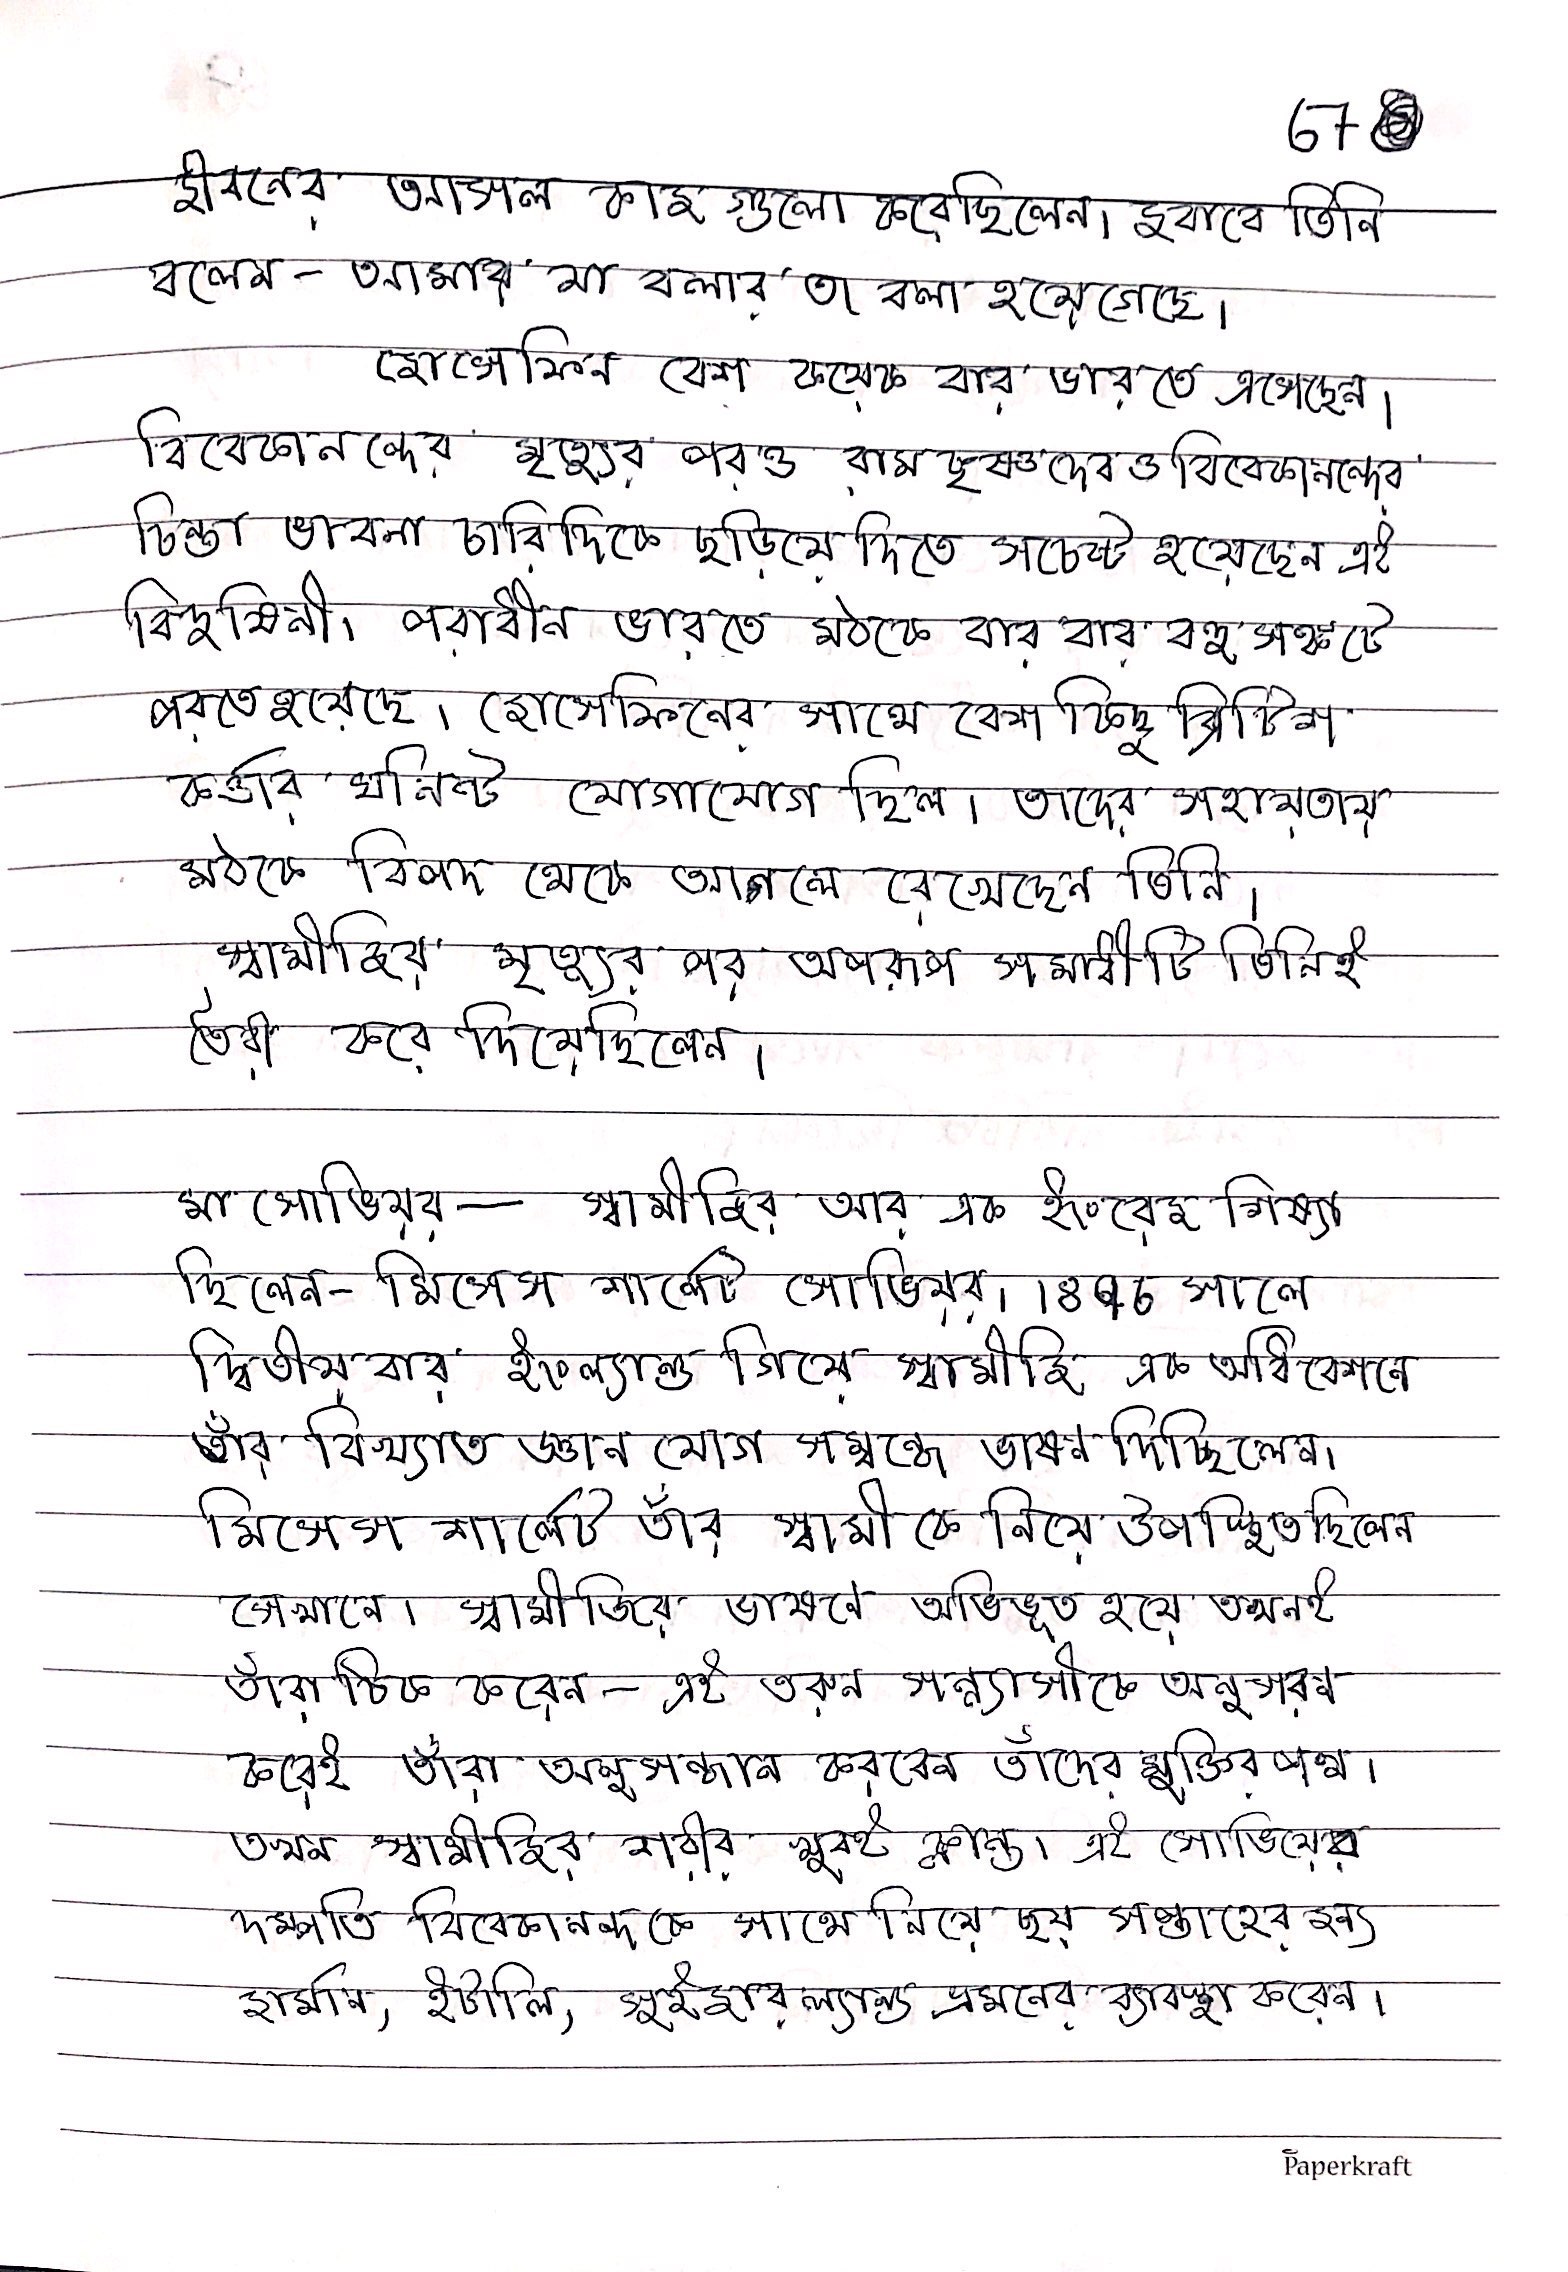 67
জীবনের আসল কাজ গুলো করেছিলেন। জবাবে তিনি
বলেন - আমার যা বলার তা বলা হয়ে গেছে।
জোসেফিন বেশ কয়েক বার ভারতে এসেছেন।
বিবেকানন্দের মৃত্যুর পরও রামকৃষ্ণদেব ও বিবেকানন্দের
চিন্তা ভাবনা চারিদিকে ছড়িয়ে দিতে সচেষ্ট হয়েছেন এই
বিদুষিনী। পরাধীন ভারতে মঠকে বার বার বহু সঙ্কটে
পরতে হয়েছে। জোসেফিনের সাথে বেশ কিছু ব্রিটিশ
কর্ত্তার ঘনিষ্ট যোগাযোগ ছিল। তাদের সহায়তায়
মঠকে বিপদ থেকে আগলে রেখেছেন তিনি।
স্বামীজির মৃত্যুর পর অপরূপ সমাধীটি তিনিই
তৈরী করে দিয়েছিলেন।
মা সোভিয়র — স্বামীজির আর এক ইংরেজ শিষ্যা
ছিলেন - মিসেস শার্লেট সোভিয়র। 1896 সালে
দ্বিতীয় বার ইংল্যান্ড গিয়ে স্বামীজি এক অধিবেশনে
তাঁর বিখ্যাত জ্ঞান যোগ সম্বন্ধে ভাষন দিচ্ছিলেন।
মিসেস শার্লেট তাঁর স্বামীকে নিয়ে উপস্থিত ছিলেন
সেখানে। স্বামীজির ভাষনে অভিভূত হয়ে তখনই
তাঁরা ঠিক করেন - এই তরুন সন্ন্যাসীকে অনুসরন
করেই তাঁরা অনুসন্ধান করবেন তাঁদের মুক্তির পথ।
তখন স্বামীজির শরীর খুবই ক্লান্ত। এই সোভিয়ের
দম্পতি বিবেকানন্দকে সাথে নিয়ে ছয় সপ্তাহের জন্য
জার্মান, ইটালি, সুইজারল্যান্ড ভ্রমনের ব্যাবস্থা করেন।
Paperkraft